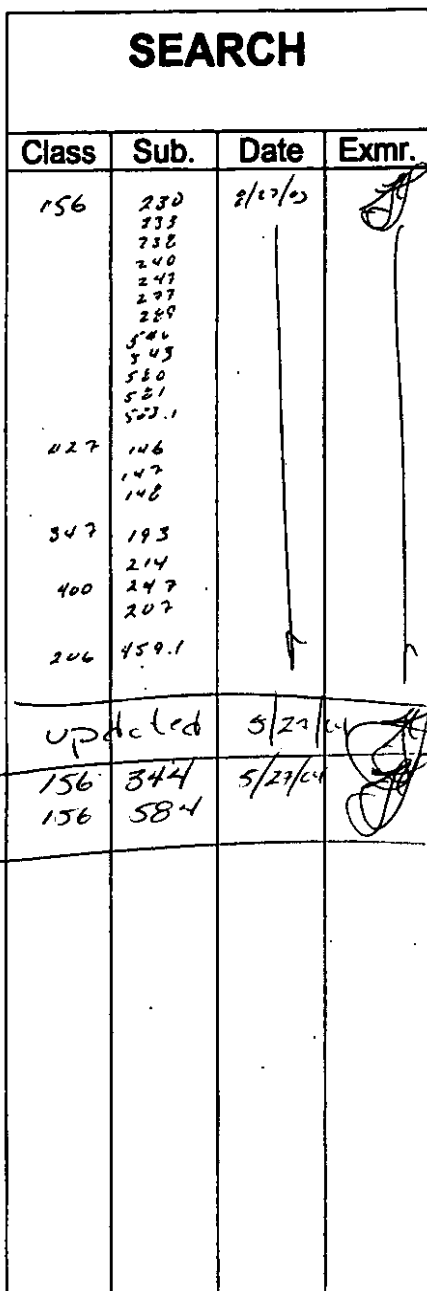 SEARCH
Class Sub. Date Exmr.
156 230 8/27/03
233
238
240
247
277
289
540
543
580
581
583.1
427 146
147
148
347 193
214
400 247
207
206 459.1
updated 5/27/04
156 344 5/27/04
156 584